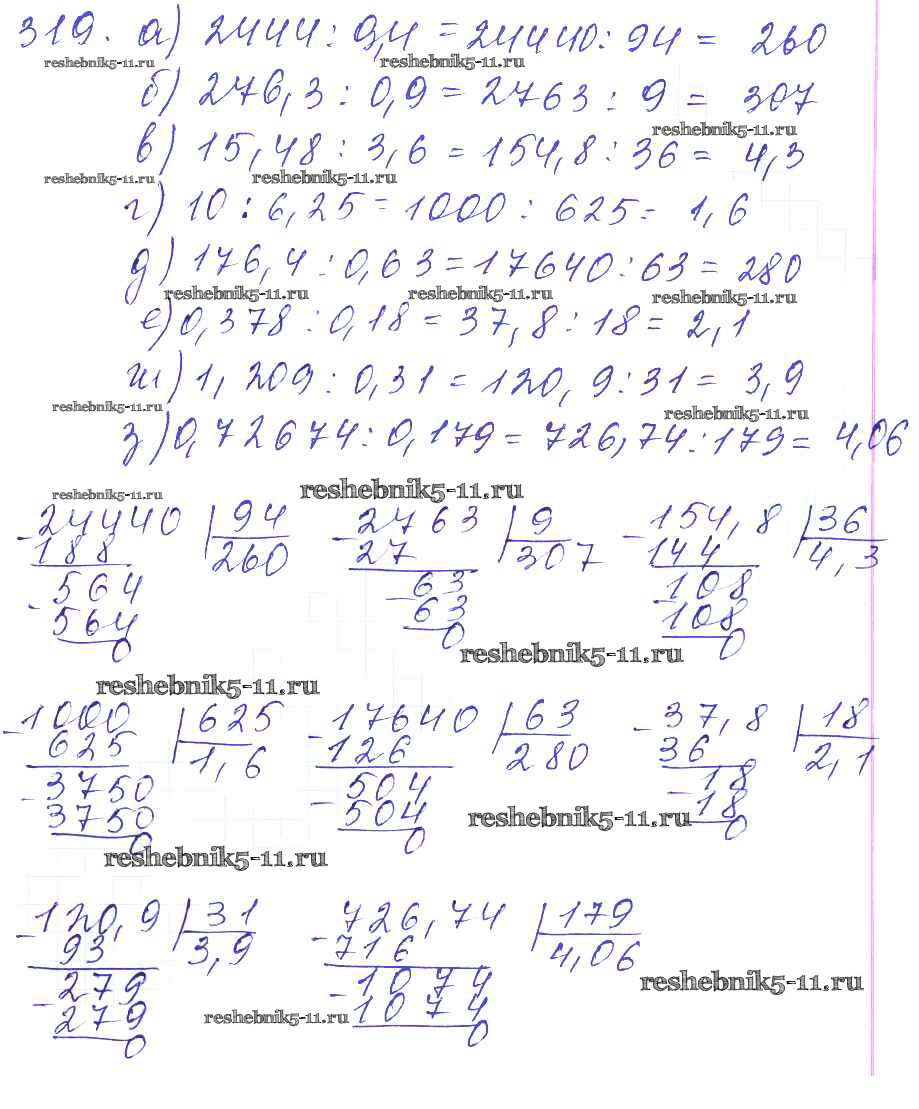 319. а) 2444 : 9,4 = 24440 : 94 = 260
reshebnik5-11.ru reshebnik5-11.ru
б) 276,3 : 0,9 = 2763 : 9 = 307
reshebnik5-11.ru
в) 15,48 : 3,6 = 154,8 : 36 = 4,3
reshebnik5-11.ru reshebnik5-11.ru
г) 10 : 6,25 = 1000 : 625 = 1,6
д) 176,4 : 0,63 = 17640 : 63 = 280
reshebnik5-11.ru reshebnik5-11.ru reshebnik5-11.ru
е) 0,378 : 0,18 = 37,8 : 18 = 2,1
ж) 1,209 : 0,31 = 120,9 : 31 = 3,9
reshebnik5-11.ru reshebnik5-11.ru
з) 0,72674 : 0,179 = 726,74 : 179 = 4,06
reshebnik5-11.ru reshebnik5-11.ru
- 24440 | 94 - 2763 | 9 - 154,8 | 36
188 260 27 307 144 4,3
- 564 - 63 - 108
564 63 108
0 0 0
reshebnik5-11.ru
reshebnik5-11.ru
- 1000 | 625 - 17640 | 63 - 37,8 | 18
625 1,6 126 280 36 2,1
- 3750 - 504 - 18
3750 504 18
0 0 0
reshebnik5-11.ru
reshebnik5-11.ru
- 120,9 | 31 - 726,74 | 179
93 3,9 716 4,06
- 279 - 1074
reshebnik5-11.ru
279 1074
reshebnik5-11.ru
0 0